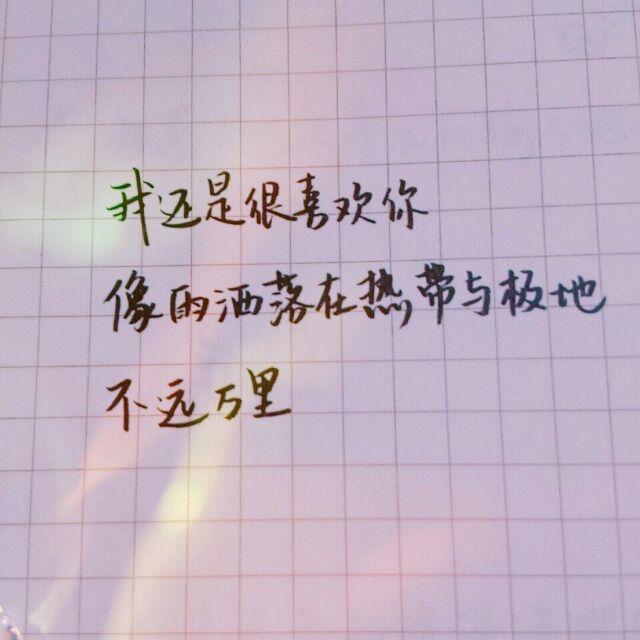 我还是很喜欢你
像雨洒落在热带与极地
不远万里